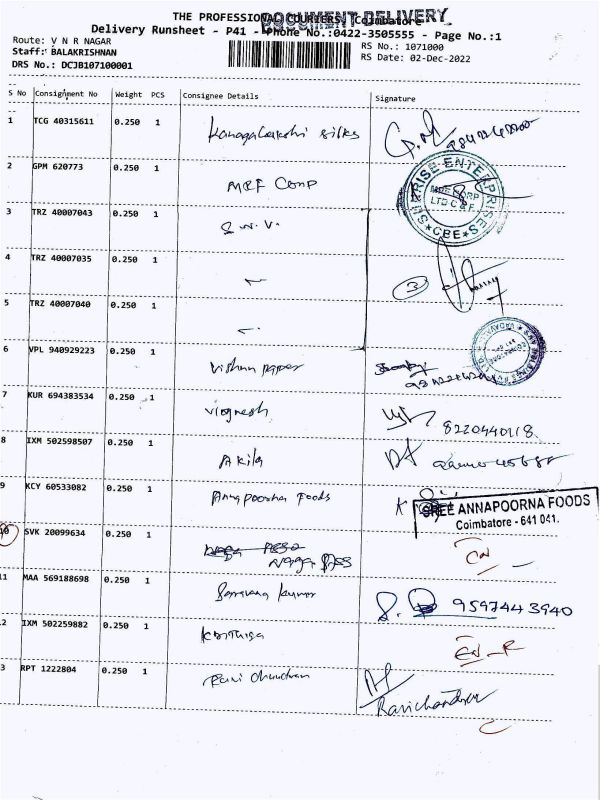 THE PROFESSIONAL COURIERS, Coimbatore
DOCUMENT DELIVERY
Delivery Runsheet - P41 - Phone No.:0422-3505555 - Page No.:1
Route: V N R NAGAR
RS No.: 1071000
Staff: BALAKRISHNAN
RS Date: 02-Dec-2022
DRS No.: DCJB107100001
S No Consignment No Weight PCS Consignee Details Signature
1 TCG 40315611 0.250 1 Kanagalakshi silks
2 GPM 620773 0.250 1 MRF Corp
SUNRISE ENTERPRISES
MRF CORP
LTD C & F
CBE
3 TRZ 40007043 0.250 1 S.N.V.
4 TRZ 40007035 0.250 1
3
5 TRZ 40007040 0.250 1
6 VPL 940929223 0.250 1 Vishnu paper
7 KUR 694383534 0.250 1 Viognesh 8220440118
8 IXM 502598507 0.250 1 Akila
9 KCY 60533082 0.250 1 Annapoorna foods
SREE ANNAPOORNA FOODS
Coimbatore - 641 041.
10 SVK 20099634 0.250 1
Naga
11 MAA 569188698 0.250 1 Saravana kumar S. 9597443940
2 IXM 502259882 0.250 1
3 RPT 1222804 0.250 1 Ravi chandran
Ravichandran